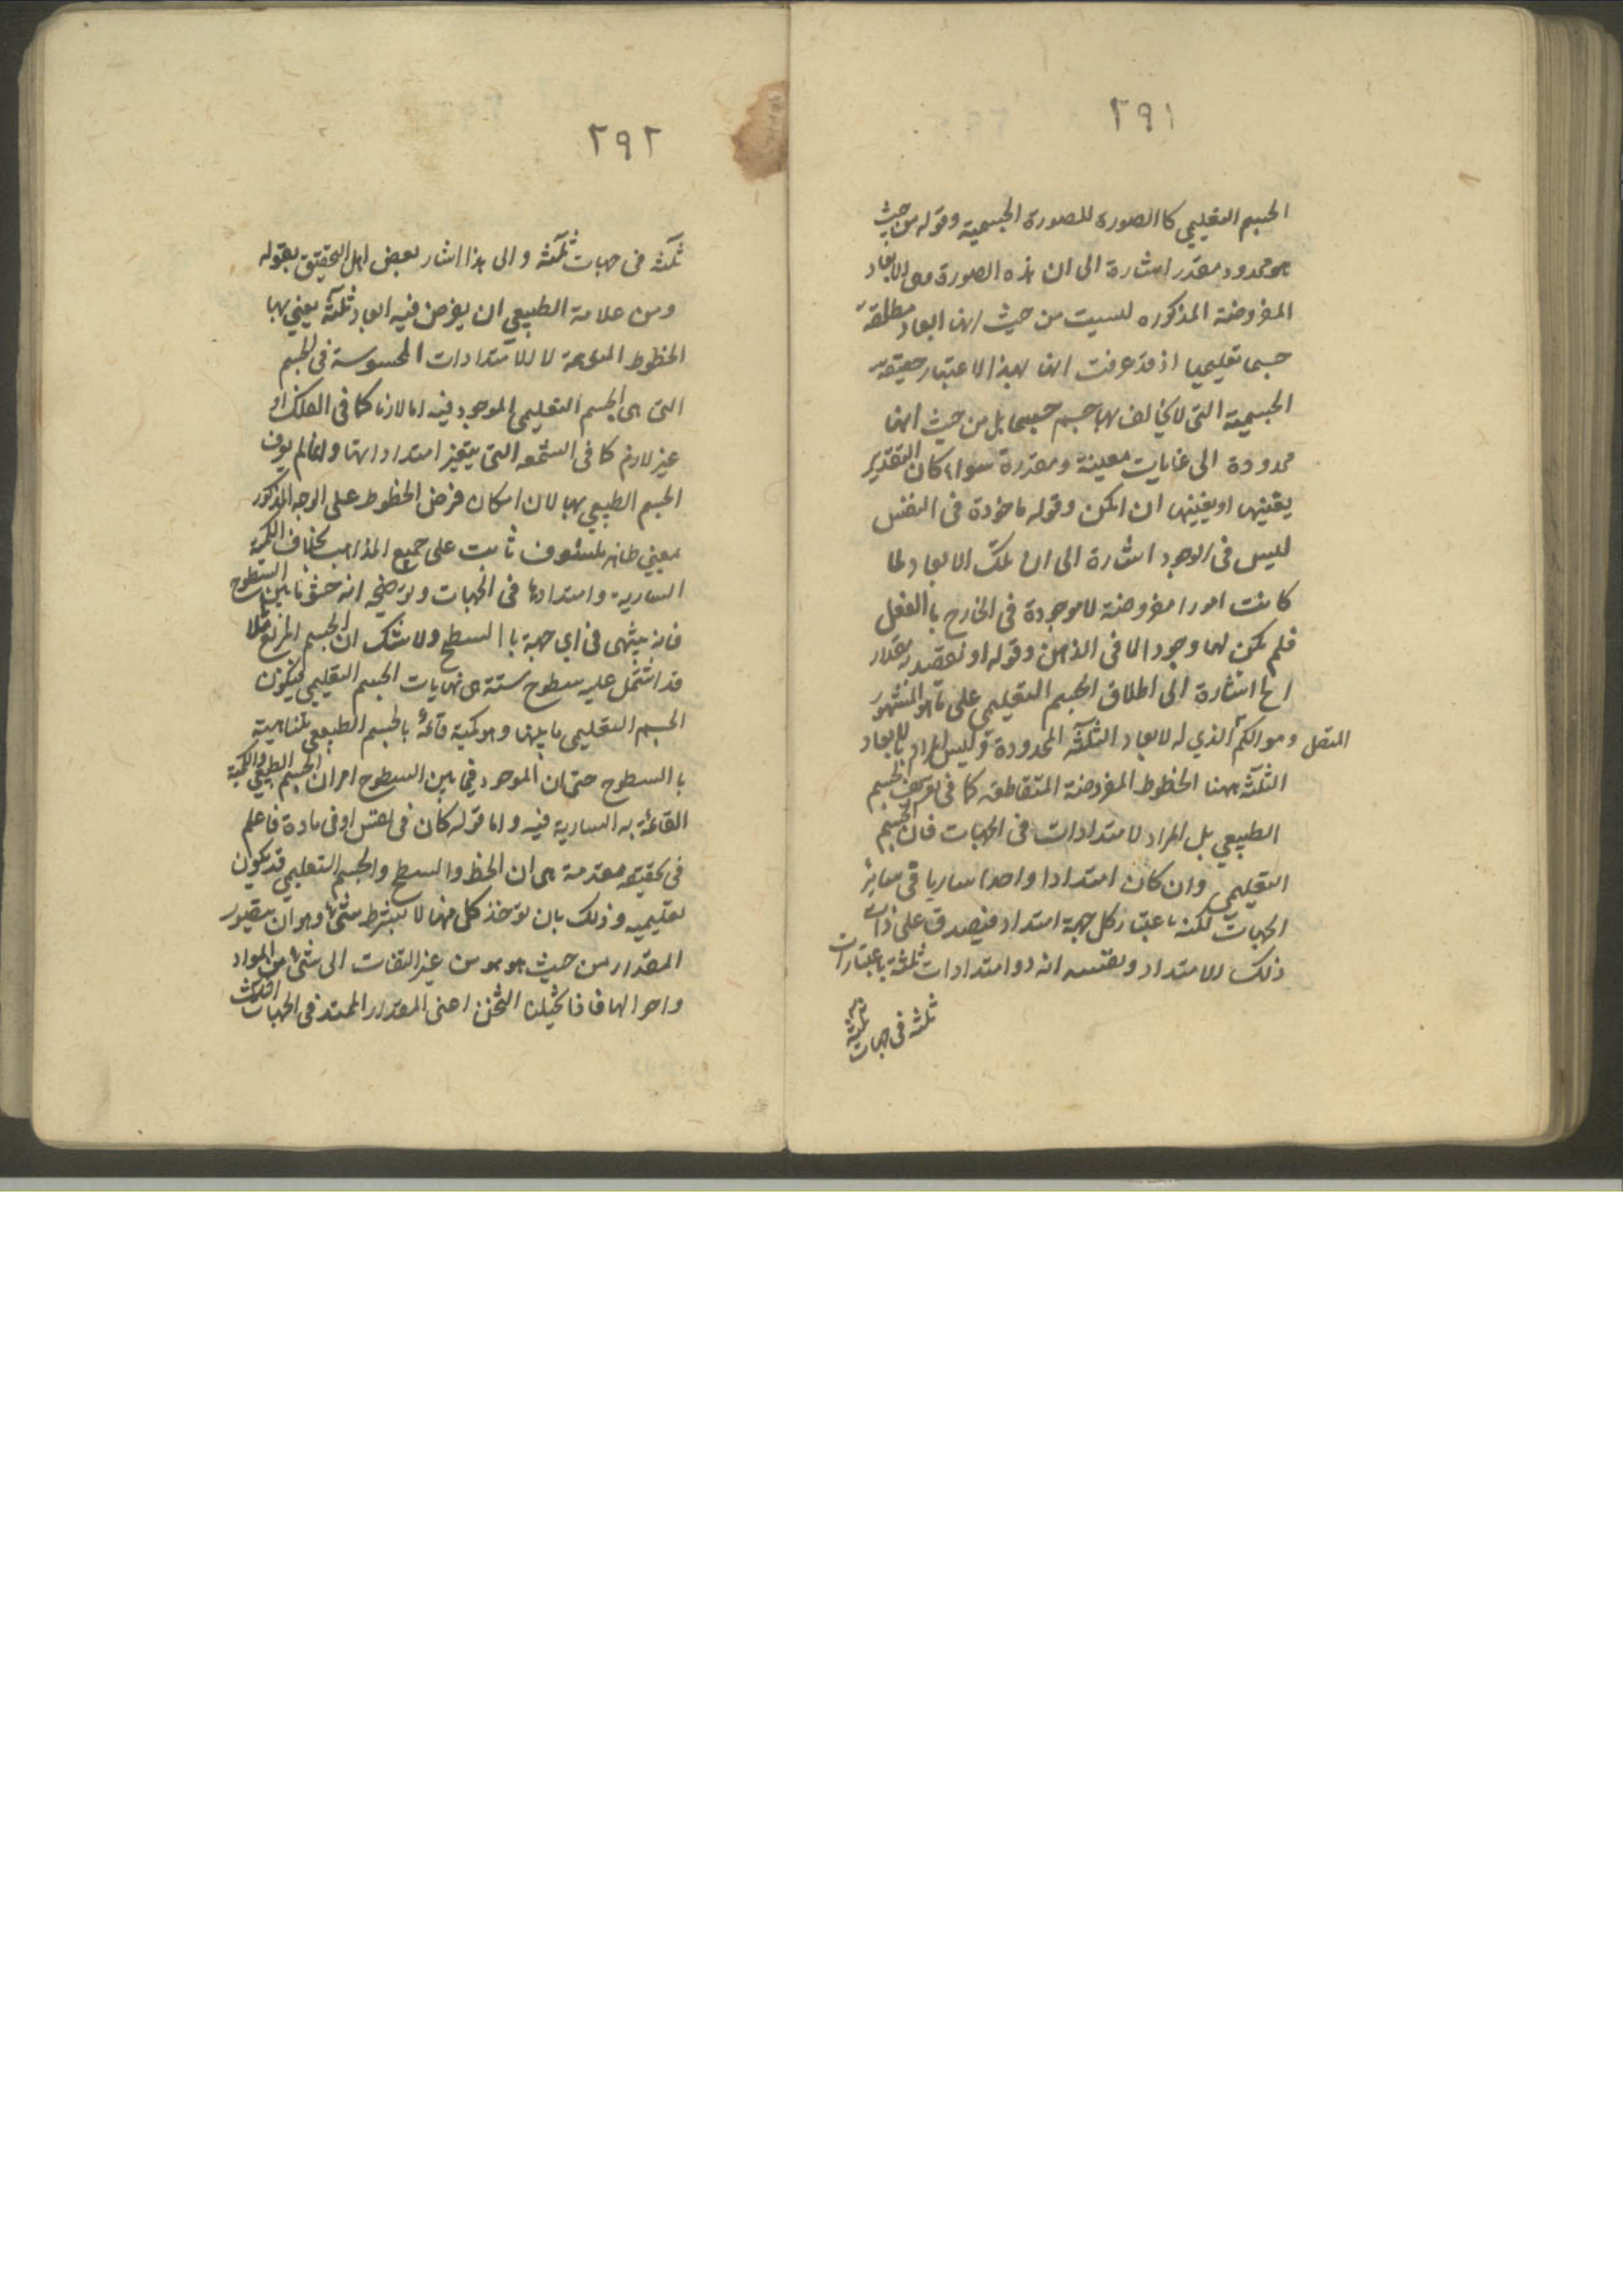 ٢٩١
الجسم التعليمي كاالصورة للصورة الجسمية وقوله من حيث
هو محدود مقدر اشارة الى ان هذه الصورة وهى الابعاد
المفروضة المذكوره ليست من حيث انها ابعاد مطلقة
جسما تعليميا اذ قد عرفت انها بهذا الاعتبار حقيقة
الجسمية التى لا يخالف بها جسم جسما بل من حيث انها
محدودة الى غايات معينة ومقدرة سواء كان التقدير
يقينها او يعينها ان امكن وقوله ماخوذة فى النفس
ليس فى الوجود اشارة الى ان تلك الابعاد لما
كانت امورا مفروضة لا موجودة فى الخارج باالفعل
فلم يكن لها وجود الا فى الذهن وقوله او نقصد به مقدار
الخ اشارة الى اطلاق الجسم التعليمي على ما هو المشهور
المتصل وهو الكم الذي له لابعاد الثلثة المحدودة وليس المراد بالابعاد
الثلثة ههنا الخطوط المفروضة المتقاطعة كما فى تعريف الجسم
الطبيعي بل المراد لامتدادات فى الجهات فان الجسم
التعليمي وان كان امتدادا واحدا ساريا فى سائر
الجهات لكنه باعتبار كل جهة امتداد فيصدق على ذات
ذلك الامتداد ونفسه انه ذو امتدادات ثلثة باعتبارات
ثلثة فى جهات ثلثة
٢٩٢
ثلثة فى جهات ثلثة والى هذا اشار بعض اهل التحقيق بقوله
ومن علامة الطبيعي ان يفرض فيه ابعاد ثلثة يعني بها
الخطوط لا للامتدادات المحسوسة فى الجسم
التى هى الجسم التعليمي الموجود فيه اما لازما كما فى الفلك او
غير لازم كما فى الشمعه التى يتغير امتداداتها وانما لم يعرف
الجسم الطبيعي بها لان امكان فرض الخطوط على الوجه المذكور
معنى ظاهر مكشوف ثابت على جميع المذاهب بخلاف الكمية
السارية وامتدادها فى الجهات وتوضيحه انه حشو ما بين السطوح
فانه ينتهى فى اي جهة باالسطح ولا شك ان الجسم المربع مثلا
قد اشتمل عليه سطوح ستة هى نهايات الجسم التعليمي فيكون
الجسم التعليمي ما بينها وهو كمية قائمة بالجسم الطبيعي متناهية
باالسطوح حتى ان الموجود فيما بين السطوح امران الجسم الطبيعي والكمية
القائمة به السارية فيه واما قوله كان فى نفس او فى مادة فاعلم
فى تحقيقه مقدمة هى ان الخط والسطح والجسم التعليمي قد يكون
تعليميه وذلك بان تؤخذ كل منها لا بشرط شئ وهو ان يتصور
المقدار من حيث هو هو من غير التفات الى شئ من المواد
واحوالها فاذا تخيلنا الثخن اعنى المقدار الممتد فى الجهات الثلث